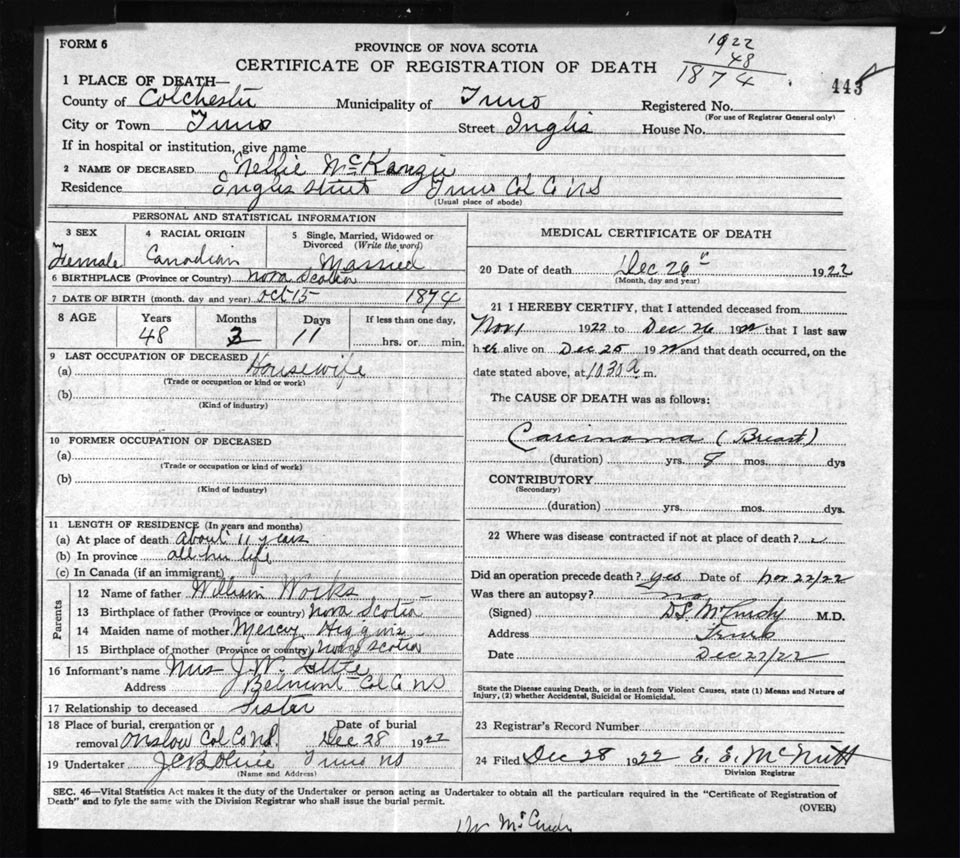 FORM 6
PROVINCE OF NOVA SCOTIA
CERTIFICATE OF REGISTRATION OF DEATH
1922
48
1874
443
1 PLACE OF DEATH—
County of Colchester Municipality of Truro Registered No.
(For use of Registrar General only)
City or Town Truro Street Inglis House No.
If in hospital or institution, give name
2 NAME OF DECEASED Nellie McKanzie
Residence Inglis Street Truro Col Co NS
(Usual place of abode)
PERSONAL AND STATISTICAL INFORMATION
3 SEX 4 RACIAL ORIGIN 5 Single, Married, Widowed or Divorced (Write the word)
Female Canadian Married
6 BIRTHPLACE (Province or Country) Nova Scotia
7 DATE OF BIRTH (month, day and year) Oct 15 1874
8 AGE Years Months Days If less than one day,
48 11 hrs. or min.
9 LAST OCCUPATION OF DECEASED
(a) Housewife
(Trade or occupation or kind or work)
(b)
(Kind of industry)
10 FORMER OCCUPATION OF DECEASED
(a)
(Trade or occupation or kind of work)
(b)
(Kind of industry)
11 LENGTH OF RESIDENCE (In years and months)
(a) At place of death About 11 years
(b) In province all her life
(c) In Canada (if an immigrant)
Parents
12 Name of father William Works
13 Birthplace of father (Province or country) Nova Scotia
14 Maiden name of mother Mercy Higgins
15 Birthplace of mother (Province or country) Nova Scotia
16 Informant's name Mrs J. W.
Address Belmont Col Co NS
17 Relationship to deceased Sister
18 Place of burial, cremation or removal Onslow Col Co NS. Date of burial Dec 28 1922
19 Undertaker Truro NS
(Name and Address)
MEDICAL CERTIFICATE OF DEATH
20 Date of death Dec 26 1922
(Month, day and year)
21 I HEREBY CERTIFY, that I attended deceased from
Nov 1 1922 to Dec 26 1922 that I last saw
her alive on Dec 25 1922 and that death occurred, on the
date stated above, at 10 30 a m.
The CAUSE OF DEATH was as follows:
Carcinoma (Breast)
(duration) yrs. 8 mos. dys
CONTRIBUTORY
(Secondary)
(duration) yrs. mos. dys.
22 Where was disease contracted if not at place of death?
Did an operation precede death? yes Date of Nov 22/22
Was there an autopsy? no
(Signed) McCurdy M.D.
Address Truro
Date Dec 27/22
State the Disease causing Death, or in death from Violent Causes, state (1) Means and Nature of Injury, (2) whether Accidental, Suicidal or Homicidal.
23 Registrar's Record Number
24 Filed Dec 28 1922 E. E. McNutt
Division Registrar
SEC. 46—Vital Statistics Act makes it the duty of the Undertaker or person acting as Undertaker to obtain all the particulars required in the "Certificate of Registration of
Death" and to fyle the same with the Division Registrar who shall issue the burial permit.
(OVER)
Dr McCurdy